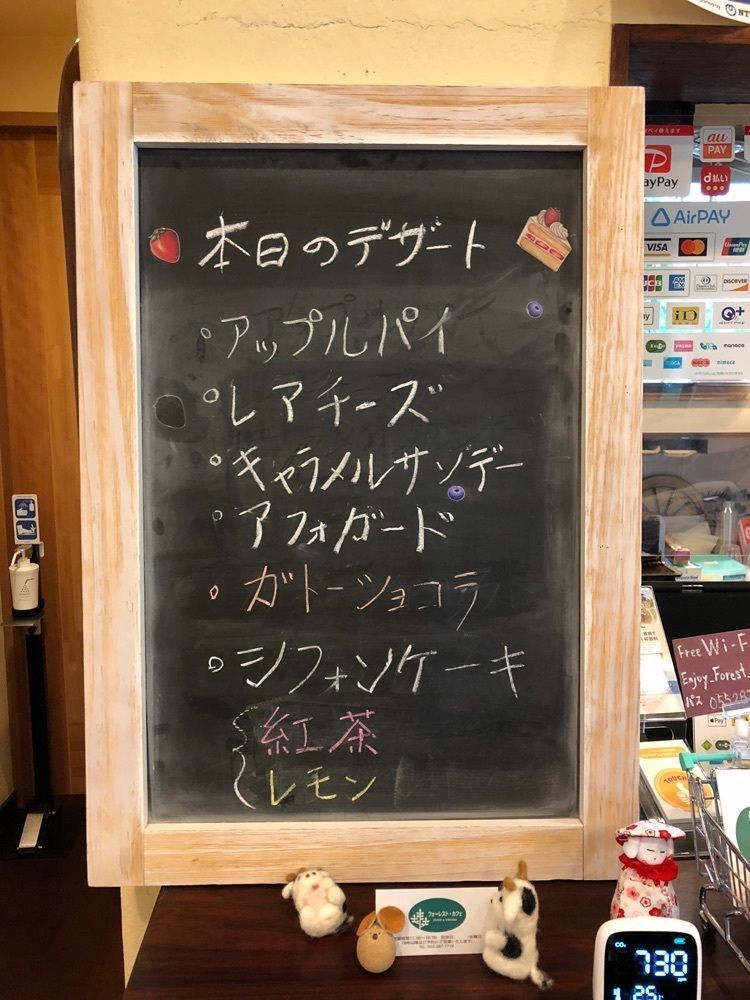 本日のデザート
アップルパイ
レアチーズ
キャラメルサンデー
アフォガード
ガトーショコラ
シフォンケーキ
紅茶
レモン
フォーレスト・カフェ
PayPay
au
PAY
d払い
AirPAY
VISA
JCB
AMEX
DISCOVER
iD
Q+
manaca
nimoca
Free Wi-F
Enjoy_Forest_
パス
TOUCH
CO₂
730
25